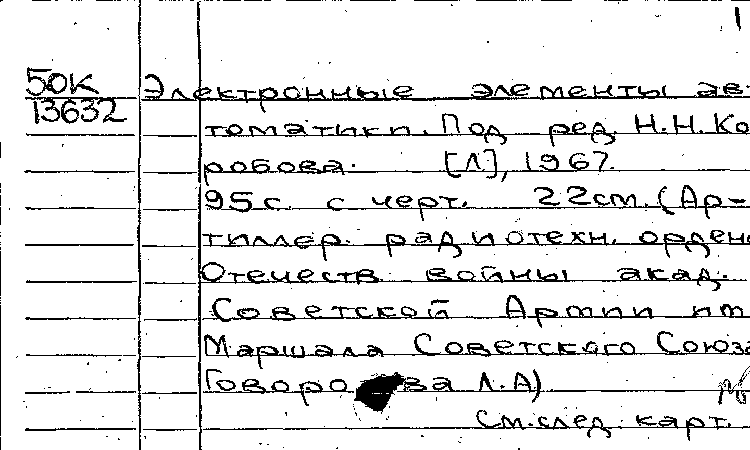 1
50К
13632
Электронные элементы ав-
томатики. Под ред. Н.Н. Ко
робова. [Л], 1967.
95 с. с черт. 22 см. (Ар-
тиллер. радиотехн. ордена
Отечеств войны акад.
Советской Армии им
Маршала Советского Союза
Говорова Л.А)
См. след. карт.